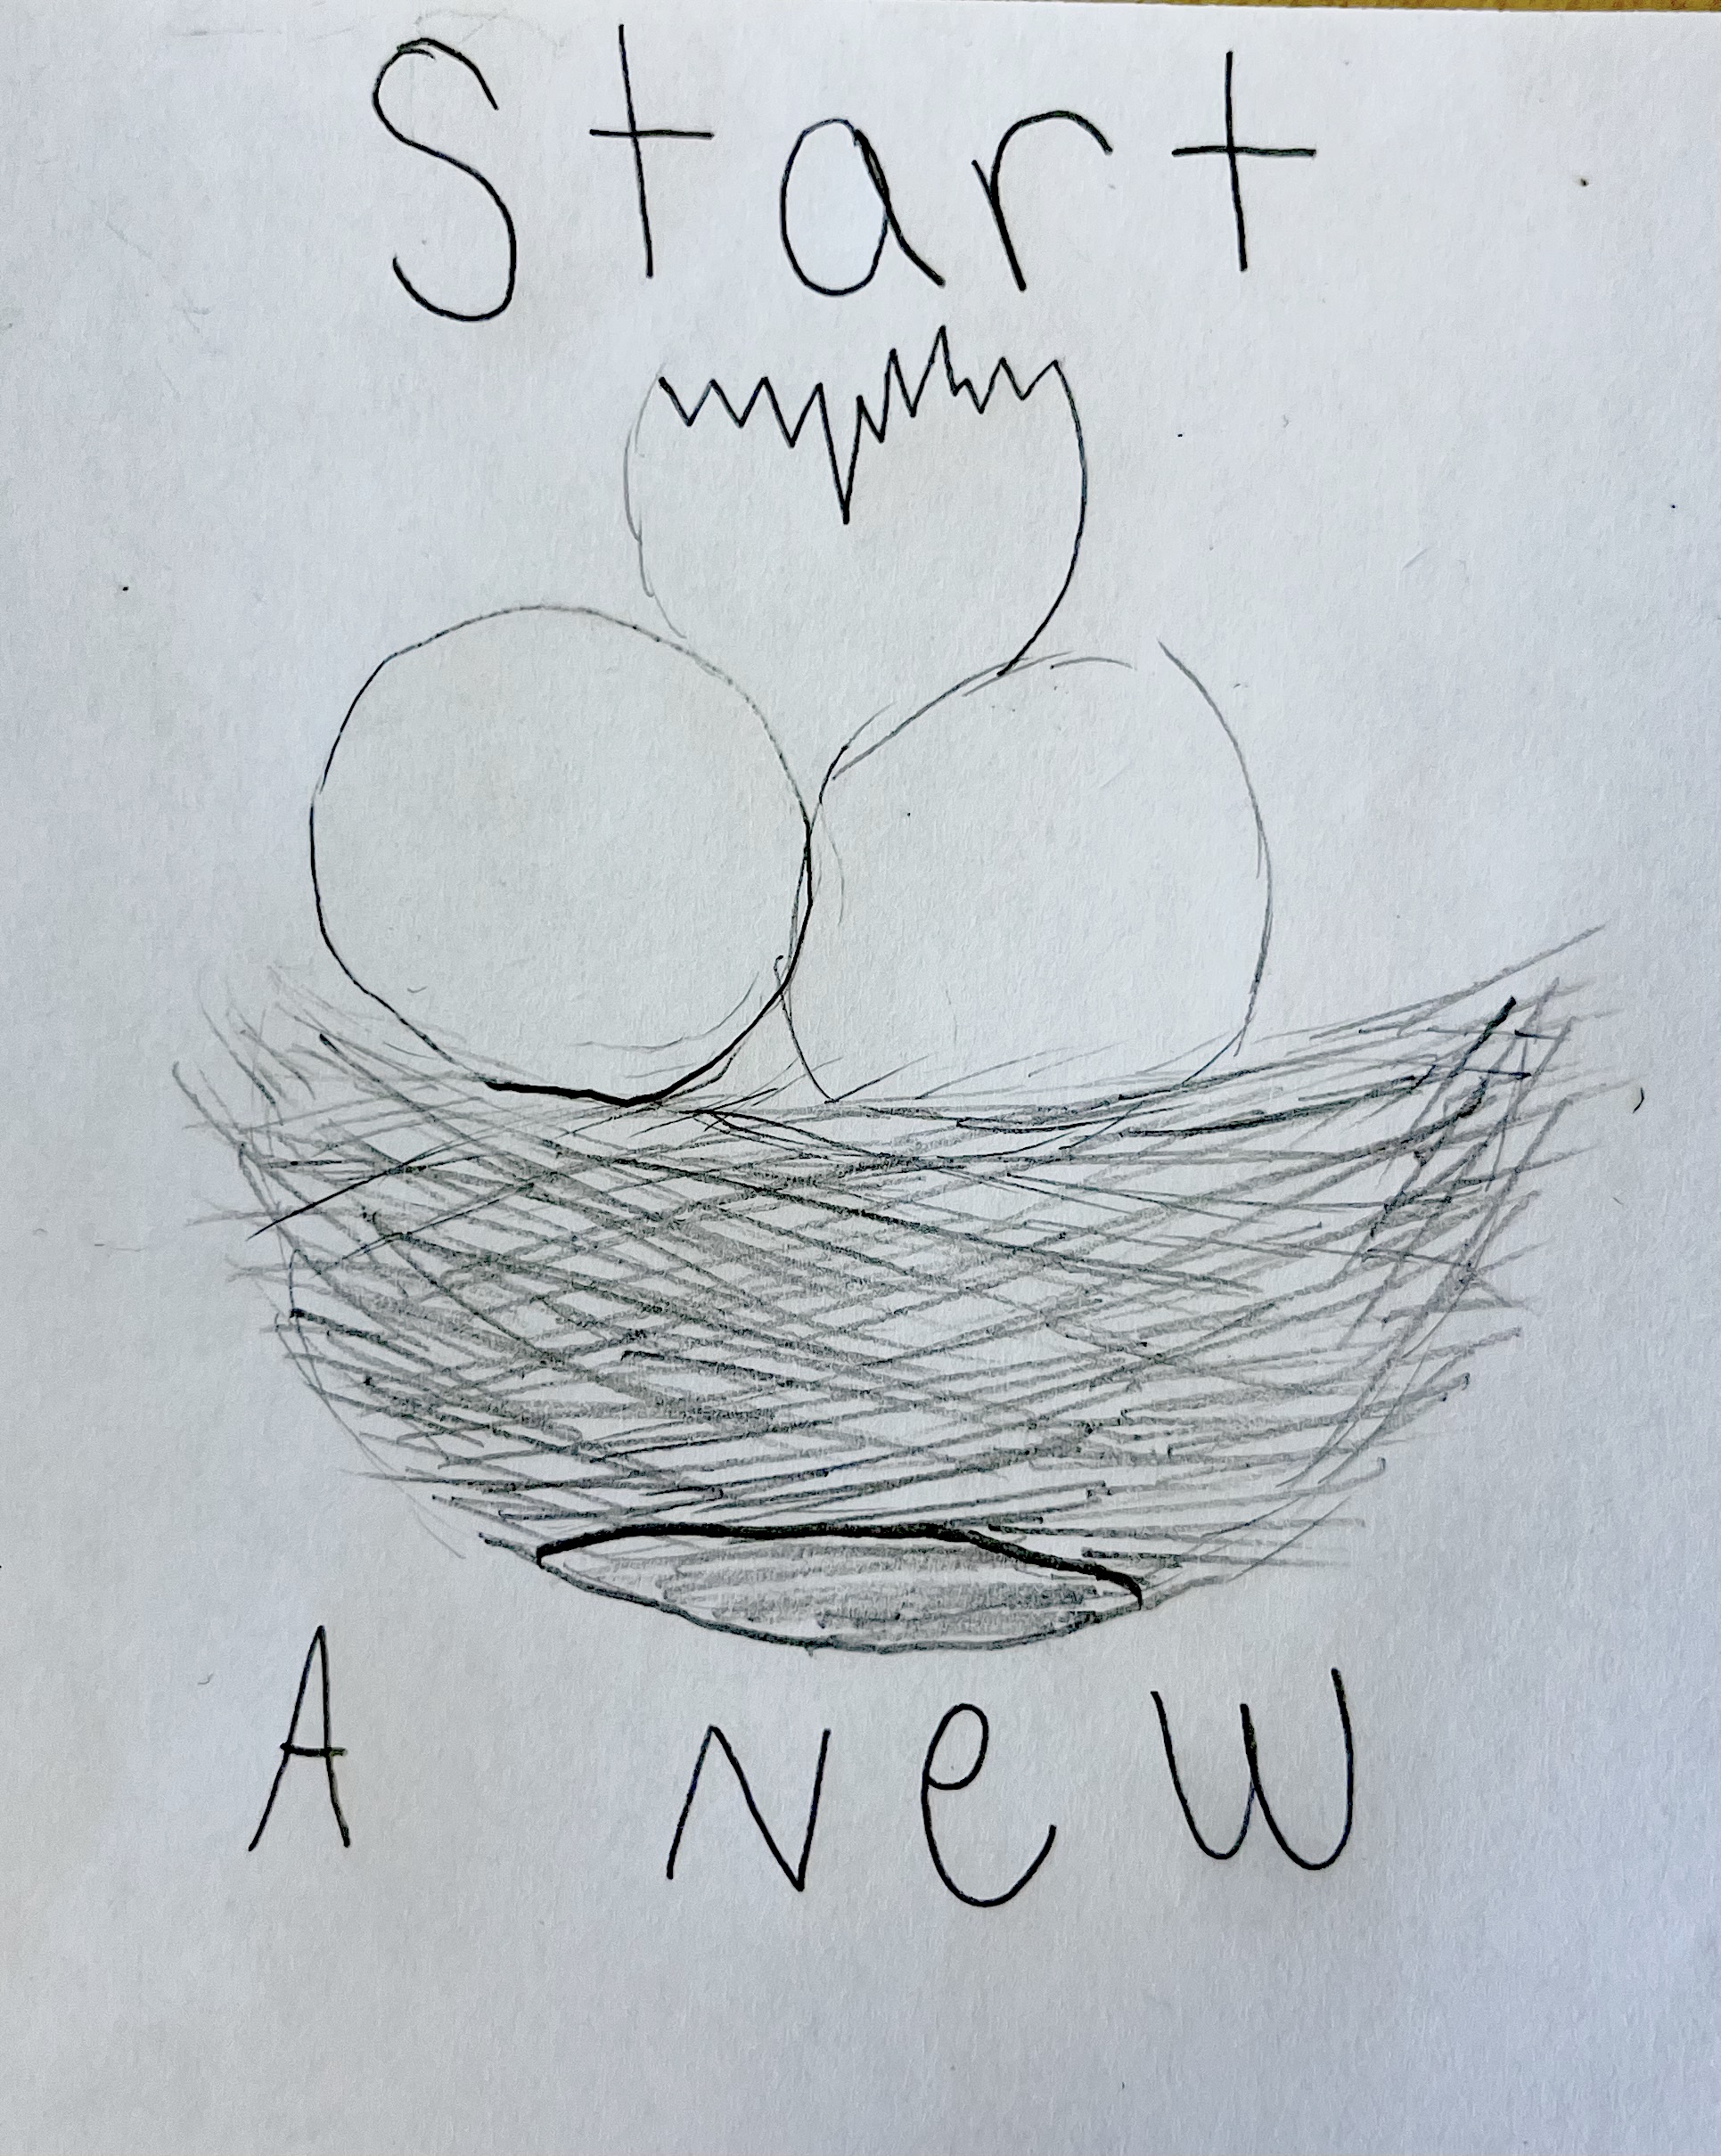 Start
A New